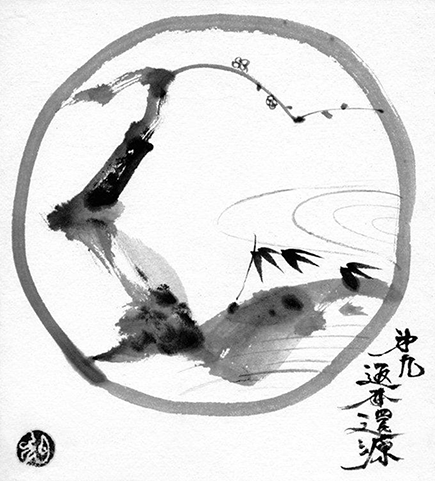 第九
返本還源